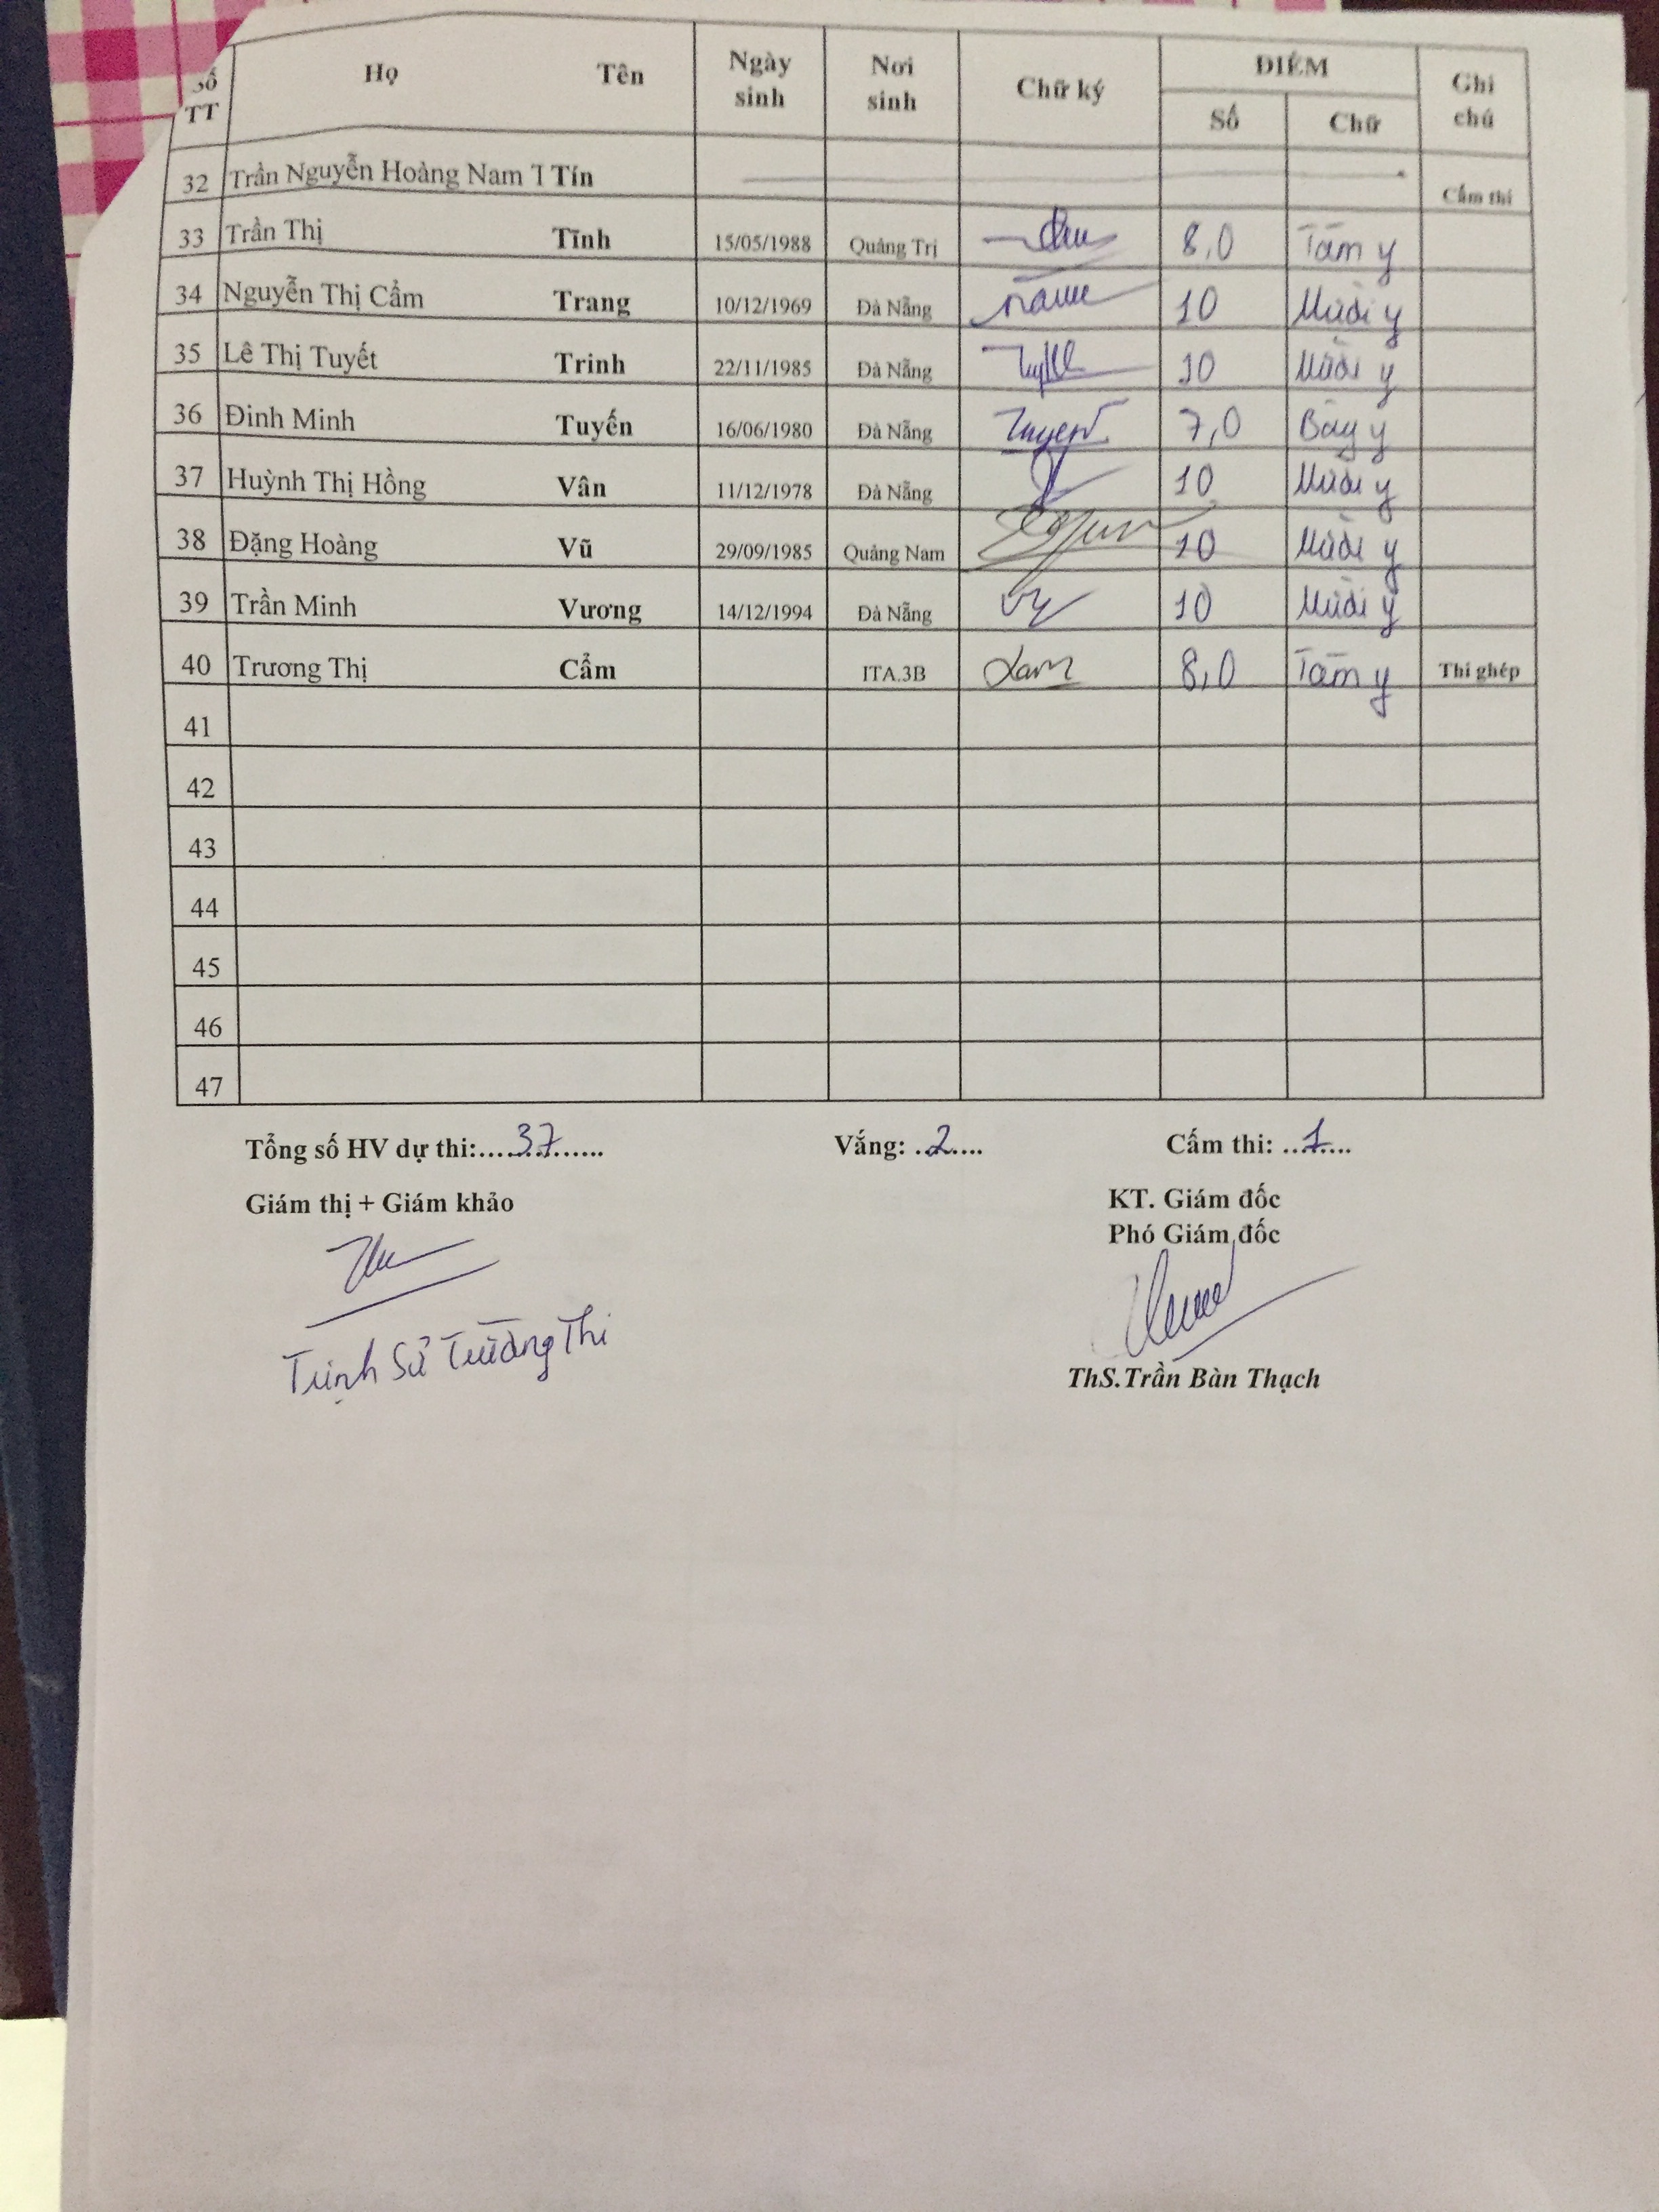 Số TT Họ Tên Ngày sinh Nơi sinh Chữ ký ĐIỂM Ghi chú
Số Chữ
32 Trần Nguyễn Hoàng Nam T Tín Cấm thi
33 Trần Thị Tĩnh 15/05/1988 Quảng Trị 8,0 Tám y
34 Nguyễn Thị Cẩm Trang 10/12/1969 Đà Nẵng 10 Mười y
35 Lê Thị Tuyết Trinh 22/11/1985 Đà Nẵng 10 Mười y
36 Đinh Minh Tuyến 16/06/1980 Đà Nẵng Tuyến 7,0 Bảy y
37 Huỳnh Thị Hồng Vân 11/12/1978 Đà Nẵng 10 Mười y
38 Đặng Hoàng Vũ 29/09/1985 Quảng Nam 10 Mười y
39 Trần Minh Vương 14/12/1994 Đà Nẵng 10 Mười y
40 Trương Thị Cẩm ITA.3B 8,0 Tám y Thi ghép
41
42
43
44
45
46
47
Tổng số HV dự thi:.....37....... Vắng: ..2..... Cấm thi: ...1....
Giám thị + Giám khảo KT. Giám đốc
Phó Giám đốc
Trịnh Sử Trường Thi
ThS.Trần Bàn Thạch